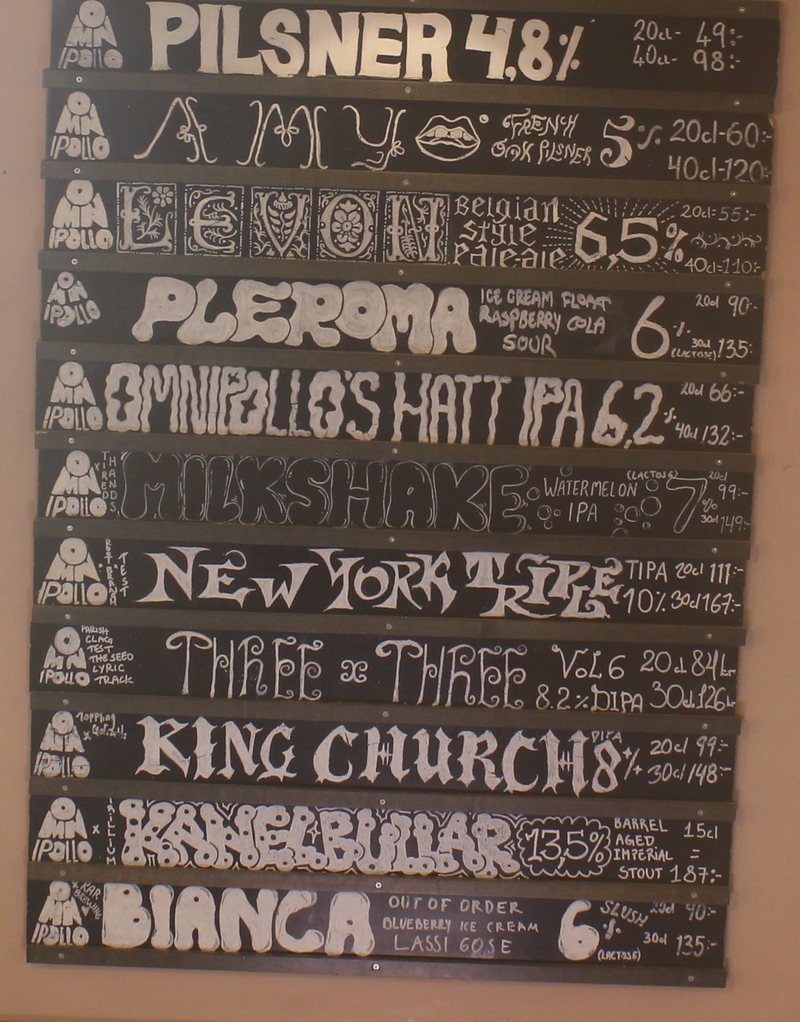 OMNIPOLLO PILSNER 4,8% 20cl- 49:-
40cl- 98:-
OMNIPOLLO AMY FRENCH OAK PILSNER 5% 20cl-60:-
40cl-120:-
OMNIPOLLO LEVON Belgian style pale ale 6,5% 20cl=55:-
40cl=110:-
OMNIPOLLO PLEROMA ICE CREAM FLOAT RASPBERRY COLA SOUR 6% (LACTOSE) 20cl 90:-
30cl 135:-
OMNIPOLLO OMNIPOLLO'S HATT IPA 6,2% 20cl 66:-
40cl 132:-
OMNIPOLLO x TIRED HANDS MILKSHAKE WATERMELON IPA (LACTOSE) 7% 20cl 99:-
30cl 149:-
OMNIPOLLO TEST NEW YORK TRIPLE TIPA 10% 20cl 111:-
30cl 167:-
OMNIPOLLO PARISH CLAG TEST THE SEED LYRIC TRACK THREE x THREE VOL 6 20cl 84kr
8.2% DIPA 30cl 126kr
OMNIPOLLO x Toppling Goliath KING CHURCH DIPA 8% 20cl 99:-
30cl 148:-
OMNIPOLLO x TRILLIUM KANELBULLAR 13,5% BARREL AGED IMPERIAL STOUT 15cl = 187:-
OMNIPOLLO BIANCA OUT OF ORDER BLUEBERRY ICE CREAM LASSI GOSE 6% (LACTOSE) SLUSH 20cl 90:-
30cl 135:-